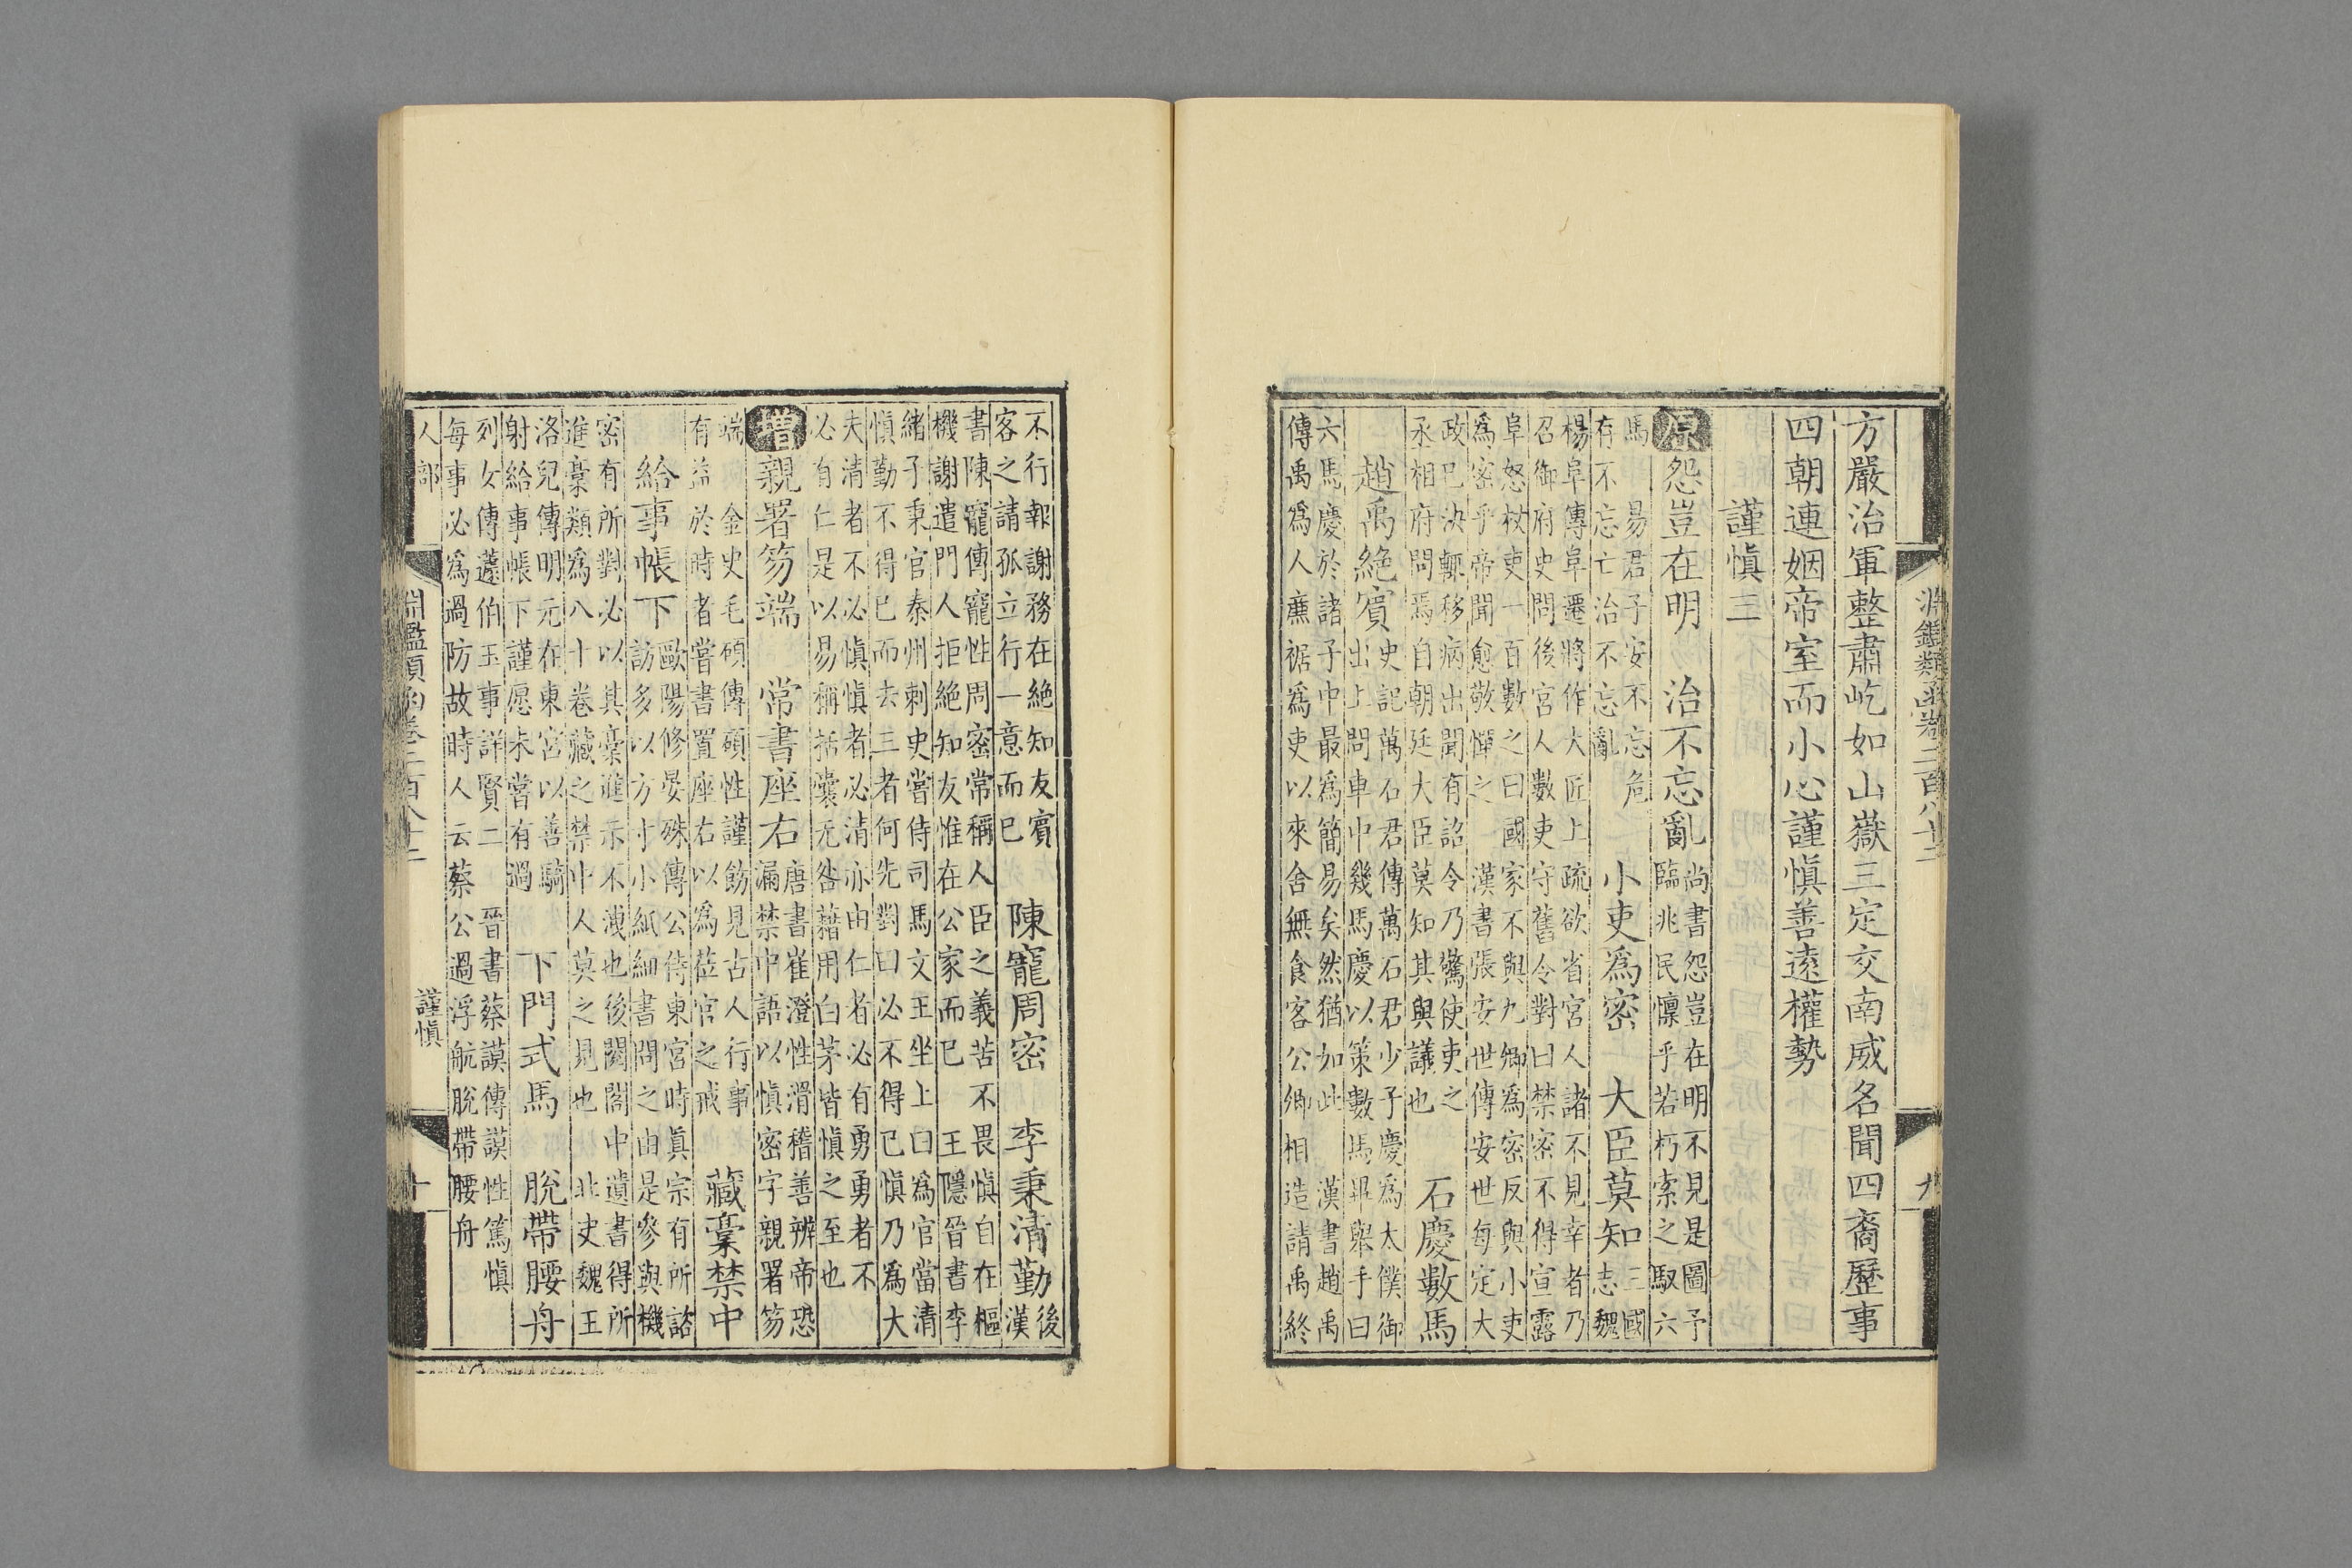 淵鑑類函卷二百八十二 九
方嚴治軍整肅屹如山嶽三定交南威名聞四裔歷事
四朝連姻帝室而小心謹愼善遠權勢
謹愼三
原 怨豈在明 治不忘亂 尚書怨豈在明不見是圖予
臨兆民懍乎若朽索之馭六
馬 易君子安不忘危
有不忘亡治不忘亂 小吏爲密 大臣莫知 三國
志魏
楊阜傳阜遷將作大匠上疏欲省宮人諸不見幸者乃
召御府史問後宮人數吏守舊令對曰禁密不得宣露
阜怒杖吏一百數之曰國家不與九卿爲密反與小吏
爲密乎帝聞愈敬憚之 漢書張安世傳安世每定大
政已決輒移病出聞有詔令乃驚使吏之
丞相府問焉自朝廷大臣莫知其與議也 石慶數馬
趙禹絶賓 史記萬石君傳萬石君少子慶爲太僕御
出上問車中幾馬慶以策數馬畢舉手曰
六馬慶於諸子中最爲簡易矣然猶如此 漢書趙禹
傳禹爲人廉裾爲吏以來舍無食客公卿相造請禹終
不行報謝務在絶知友賓
客之請孤立行一意而已 陳寵周密 李秉清勤 後
漢
書陳寵傳寵性周密常稱人臣之義苦不畏愼自在樞
機謝遣門人拒絶知友惟在公家而已 王隱晉書李
緒子秉官秦州刺史嘗侍司馬文王坐上曰爲官當清
愼勤不得已而去三者何先對曰必不得已愼乃爲大
夫清者不必愼愼者必清亦由仁者必有勇勇者不
必有仁是以易稱括囊无咎藉用白茅皆愼之至也
增 親署笏端 常書座右 唐書崔澄性滑稽善辨帝恐
漏禁中語以愼密字親署笏
端 金史毛碩傳碩性謹飭見古人行事
有益於時者嘗書置座右以爲莅官之戒 藏稾禁中
給事帳下 歐陽修晏殊傳公侍東宮時眞宗有所諮
訪多以方寸小紙細書問之由是參與機
密有所對必以其稾進示不洩也後閱閣中遺書得所
進稾類爲八十卷藏之禁中人莫之見也 北史魏王
洛兒傳明元在東宮以善騎
射給事帳下謹愿未嘗有過 下門式馬 脫帶腰舟
列女傳蘧伯玉事詳賢二 晉書蔡謨傳謨性篤愼
每事必爲過防故時人云蔡公過浮航脫帶腰舟
人部 淵鑑類函卷二百八十二 謹愼 十